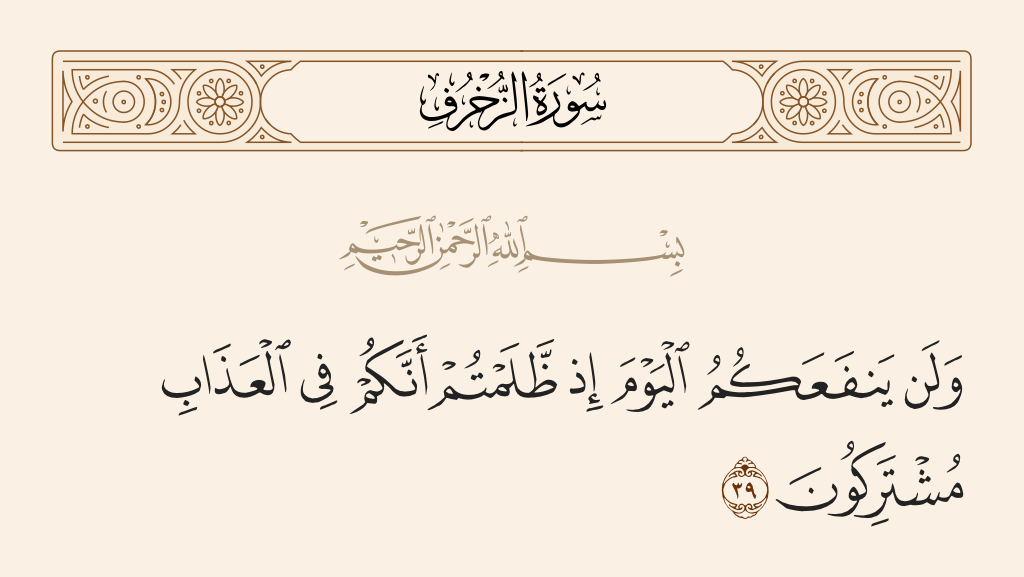 سُورَةُ الزُّخْرُفِ
بِسْمِ ٱللَّهِ ٱلرَّحْمَٰنِ ٱلرَّحِيمِ
وَلَن يَنفَعَكُمُ ٱلْيَوْمَ إِذ ظَّلَمْتُمْ أَنَّكُمْ فِى ٱلْعَذَابِ
مُشْتَرِكُونَ ٣٩